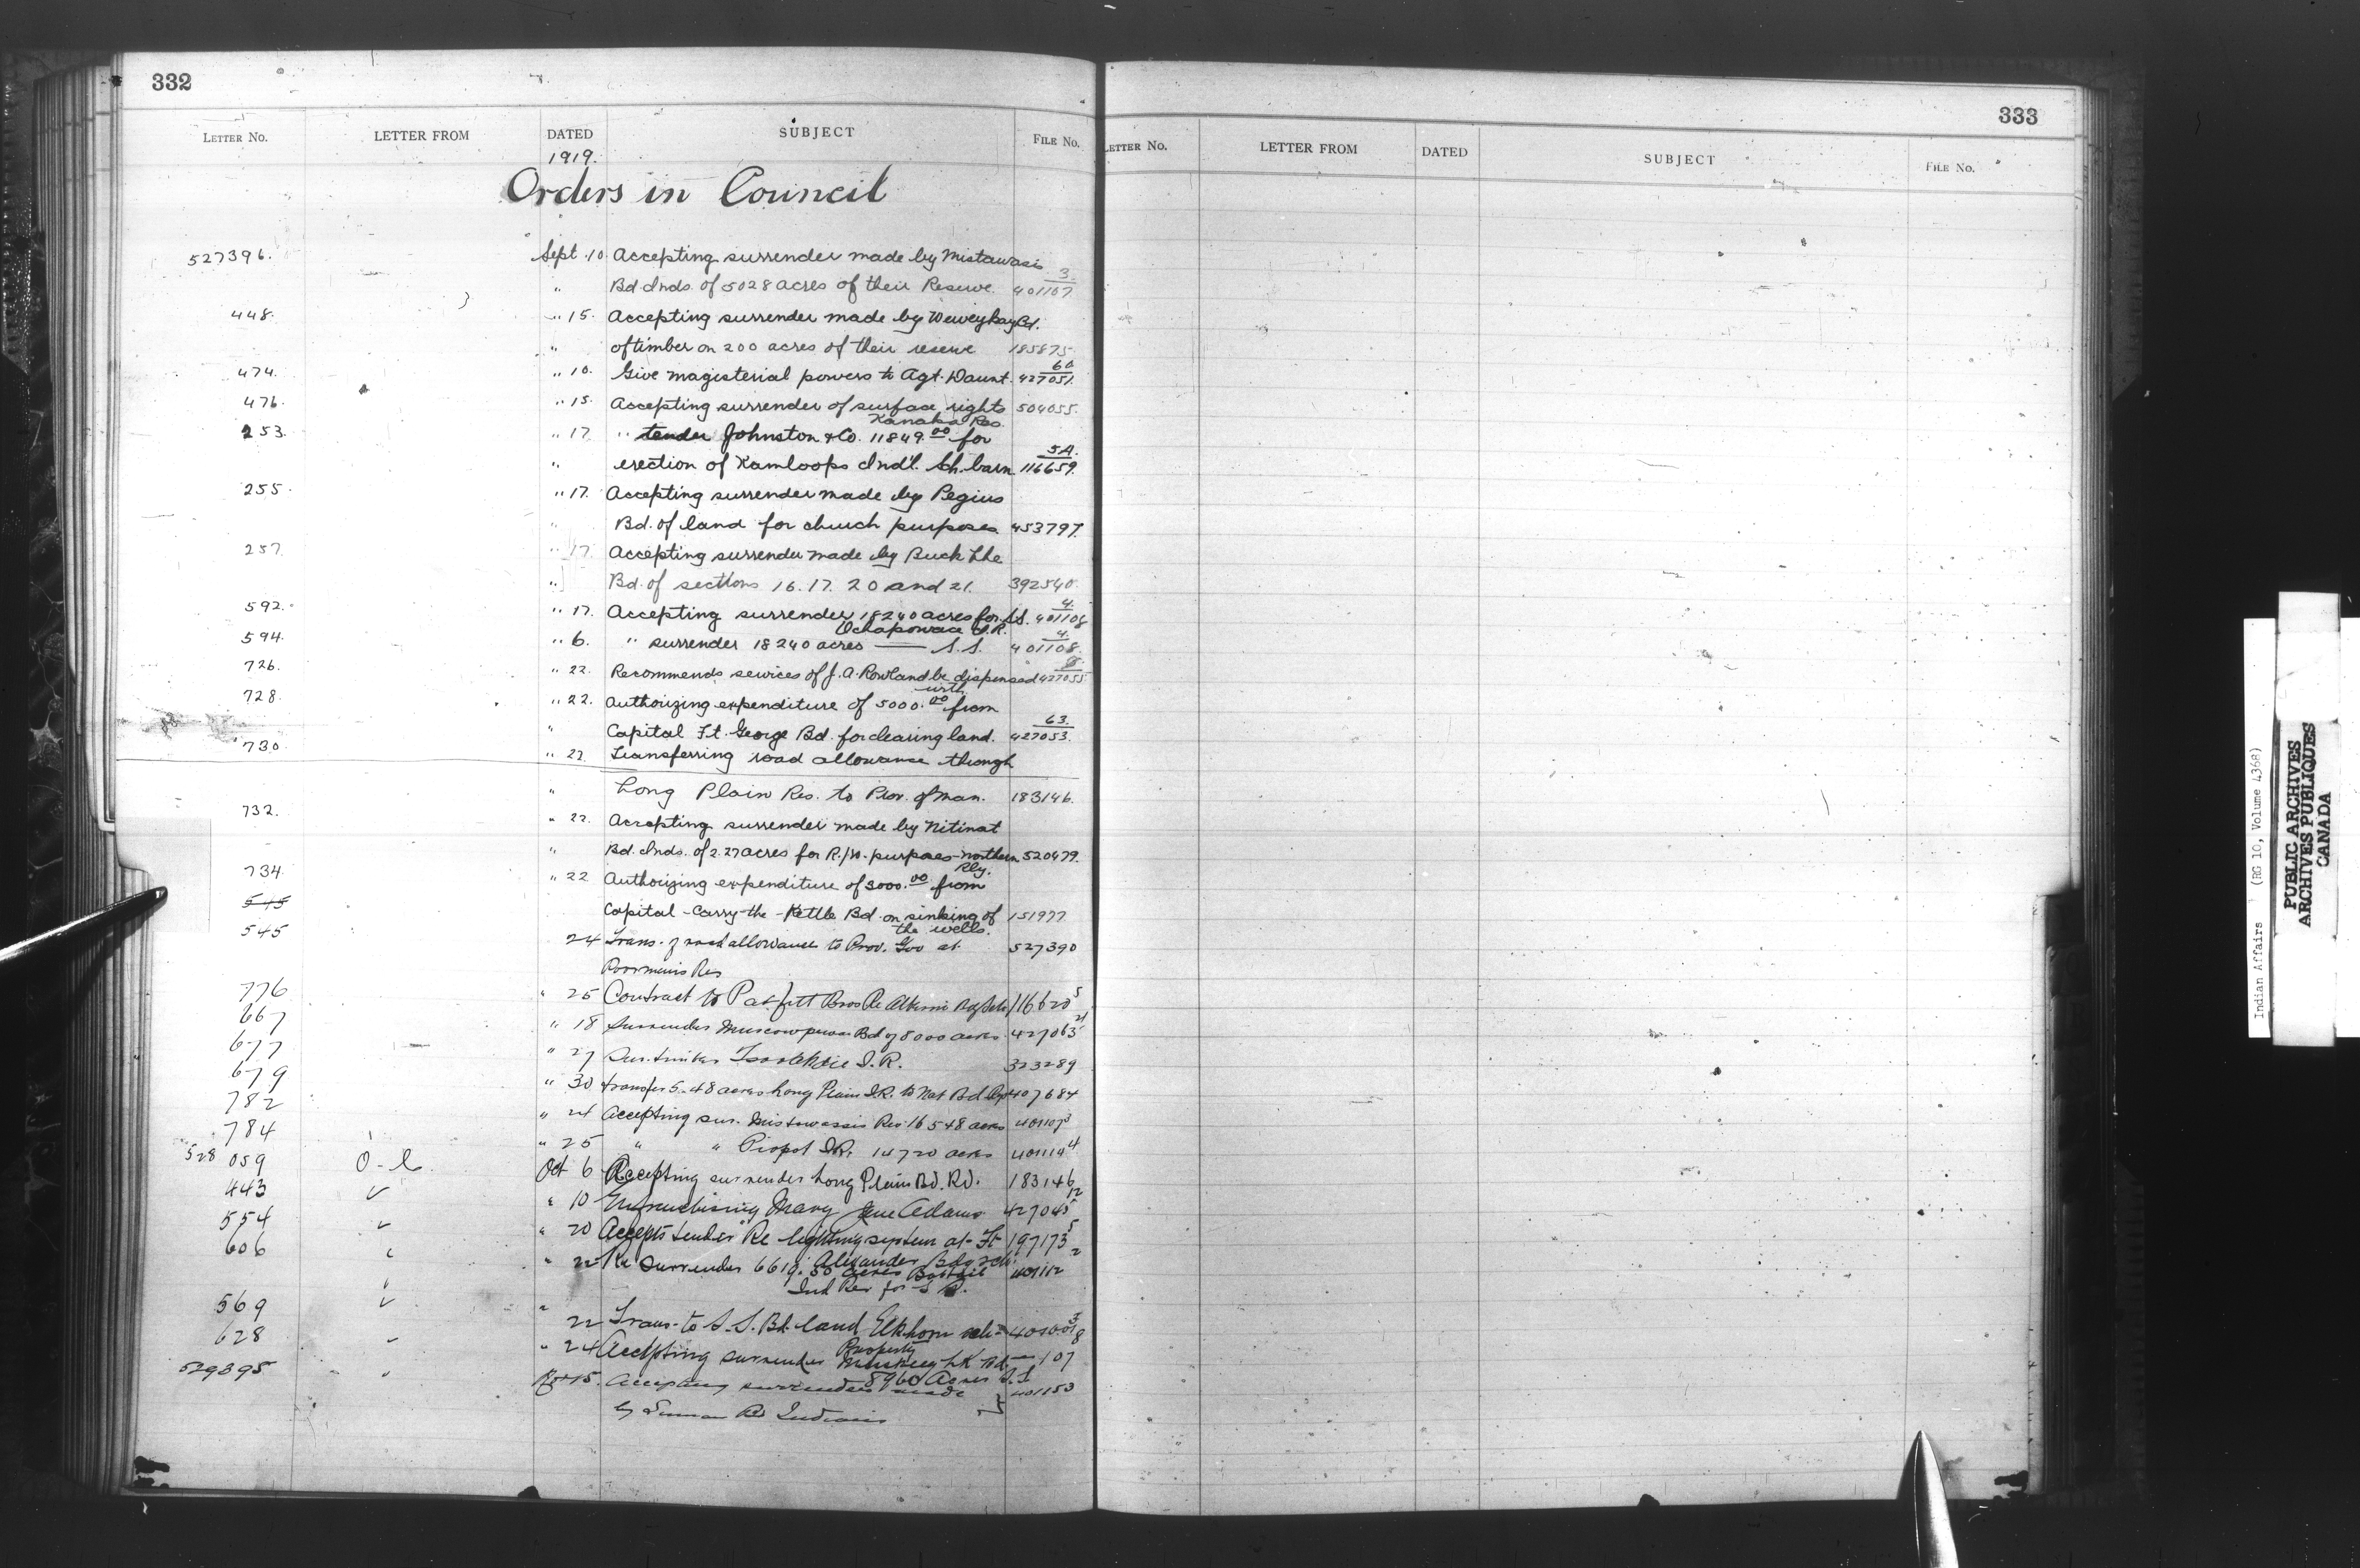 332
LETTER No. LETTER FROM DATED SUBJECT FILE No.
1919.
Orders in Council
527396. Sept. 10. Accepting surrender made by Mistawasis
" Bd. Inds. of 5028 acres of their Reserve. 401107 3.
448. " 15. Accepting surrender made by Bd.
" of timber on 200 acres of their reserve 185875
474. " 10. Give magisterial powers to Agt. Daunt. 427051. 60
476. " 15. Accepting surrender of surface rights 504055.
Kanaka Res.
253. " 17. " tender Johnston & Co. 11849.00 for
" erection of Kamloops Ind'l. Sch. barn 116659. 5A.
255. " 17. Accepting surrender made by Pegius
" Bd. of land for church purposes. 453797.
257. " 17. Accepting surrender made by Buck Lke
" Bd. of sections 16. 17. 20 and 21. 392540.
592. " 17. Accepting surrender 18240 acres for S.S. 401108 4.
Ochapowace I.R.
594. " 6. " surrender 18240 acres — S.S. 401108. 4.
726. " 22. Recommends services of J. A. Rowland be dispensed 427055
with
728. " 22. Authorizing expenditure of 5000.00 from
" Capital Ft. George Bd. for clearing land. 427053. 63.
730. " 22. Transferring road allowance through
" Long Plain Res. to Prov. of Man. 183146.
732. " 22. Accepting surrender made by Nitinat
" Bd. Inds. of 2.27 acres for R/W. purposes - Northern 520479.
Rly.
734. " 22 Authorizing expenditure of 3000.00 from
545 Capital - Carry - the - Kettle Bd. on sinking of 151977
the wells.
545 24 Trans. of road allowance to Prov. Gov at 527390
Poormans Res
776 " 25 Contract to Bros Re Alberni 116620 5
667 " 18 Surrender Muscowpetung Bd of 8000 acres 427063 21
677 " 27 Sur. timber I.R. 323289
679 " 30 transfer 5.48 acres Long Plain I.R. to Nat Bd 407684
782 " 24 Accepting sur. Mistawasis Res 16548 acres 401107 3
784 " 25 " " Piapot I.R. 14720 acres 401114 4
528 059 O-C. Oct 6 Accepting surrender Long Plain Bd. Rd. 183146
443 " 10 Enfranchising Mary Jane Adams 427045 12
554 " 20 Accepts tender Re lighting system at Ft 197173 5
Alexander Bdg sch.
606 " 22 Re Surrender 6619.50 acres 401112 2
Ind Res for S.S.
569 " 22 Trans. to S.S. Bd. land Elkhorn sch
Property
628 " 24 Accepting surrender Muskeg Lk Bd. 107
8960 Acres S.S
529895 15. Accepting surrender made } 401153
by Res Indians
333
LETTER No. LETTER FROM DATED SUBJECT FILE No.
Indian Affairs (RG 10, Volume 4368)
PUBLIC ARCHIVES
ARCHIVES PUBLIQUES
CANADA